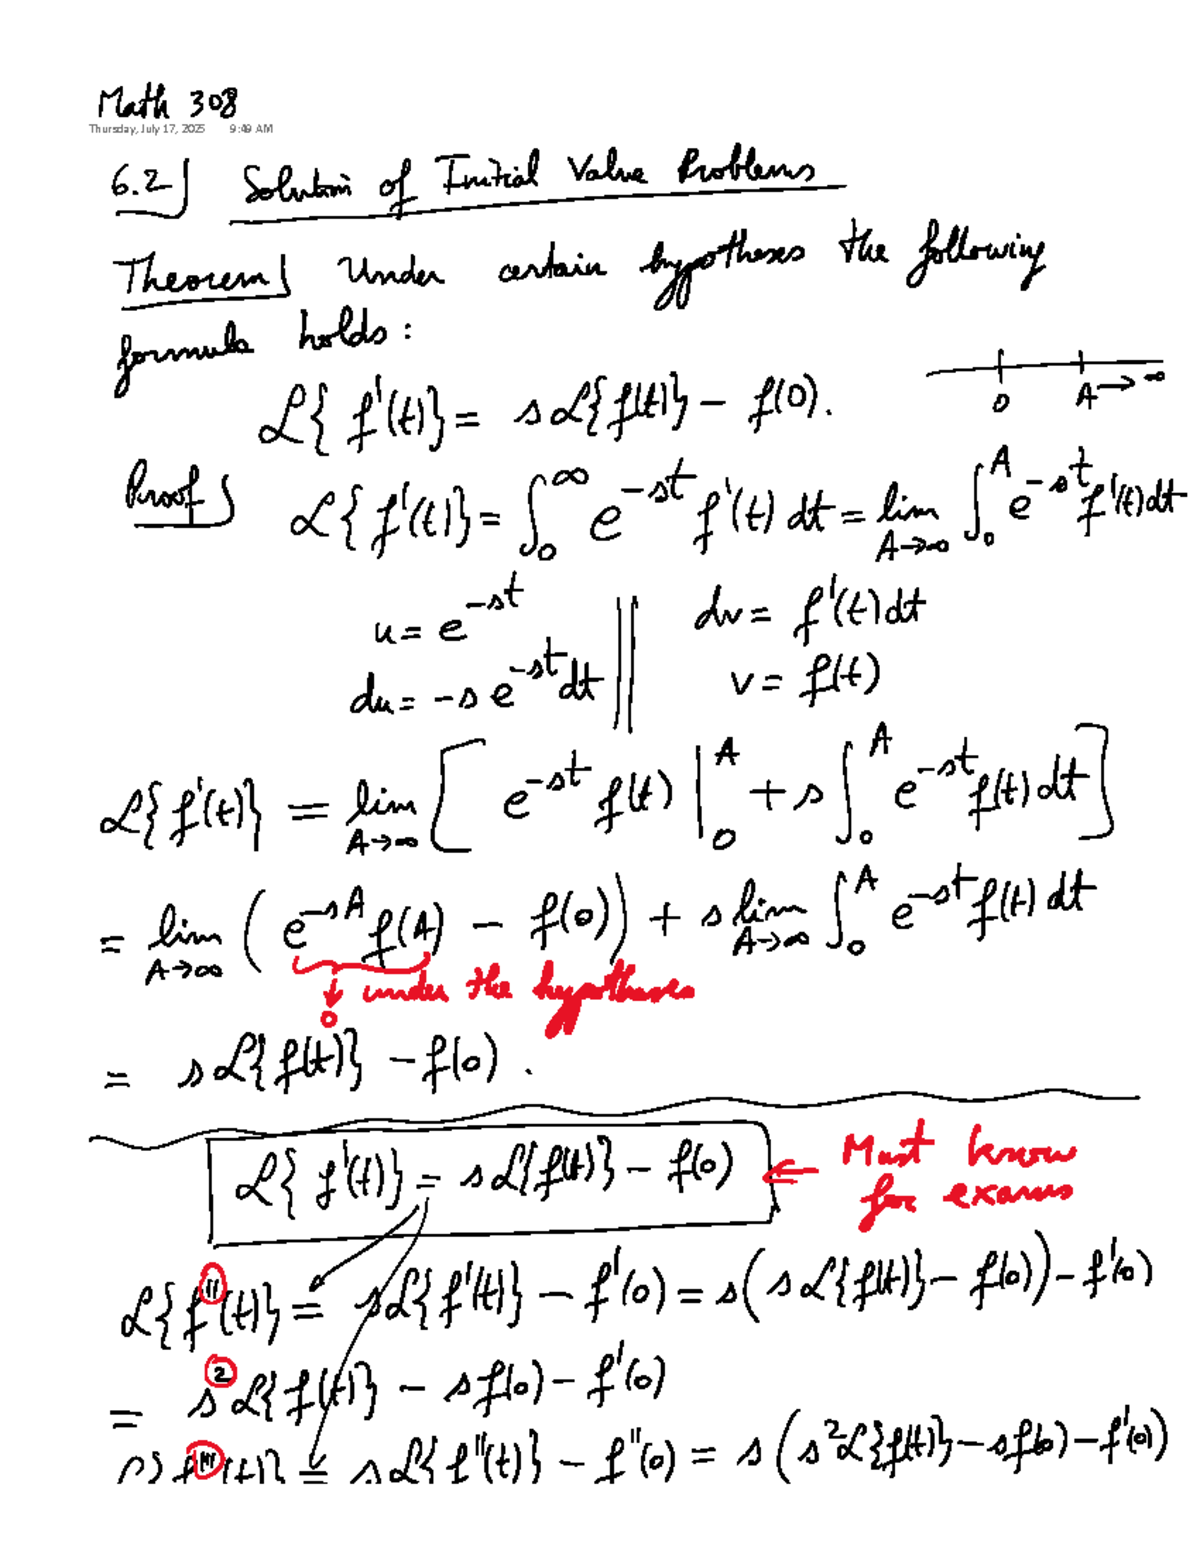 Math 308
Thursday, July 17, 2025 9:49 AM
6.2) Solution of Initial Value Problems
Theorem) Under certain hypotheses the following
formula holds:
ℒ{f'(t)} = sℒ{f(t)} - f(0).
0 A→∞
Proof) ℒ{f'(t)} = ∫_0^∞ e^{-st} f'(t) dt = lim_{A→∞} ∫_0^A e^{-st} f'(t) dt
u = e^{-st} || dv = f'(t) dt
du = -s e^{-st} dt || v = f(t)
ℒ{f'(t)} = lim_{A→∞} [ e^{-st} f(t) |_0^A + s ∫_0^A e^{-st} f(t) dt ]
= lim_{A→∞} ( e^{-sA} f(A) - f(0) ) + s lim_{A→∞} ∫_0^A e^{-st} f(t) dt
↓ under the hypotheses
0
= sℒ{f(t)} - f(0).
ℒ{f'(t)} = sℒ{f(t)} - f(0) ← Must know
for exams
ℒ{f''(t)} = sℒ{f'(t)} - f'(0) = s(sℒ{f(t)} - f(0)) - f'(0)
= s^2 ℒ{f(t)} - sf(0) - f'(0)
ℒ{f'''(t)} = sℒ{f''(t)} - f''(0) = s(s^2 ℒ{f(t)} - sf(0) - f'(0))